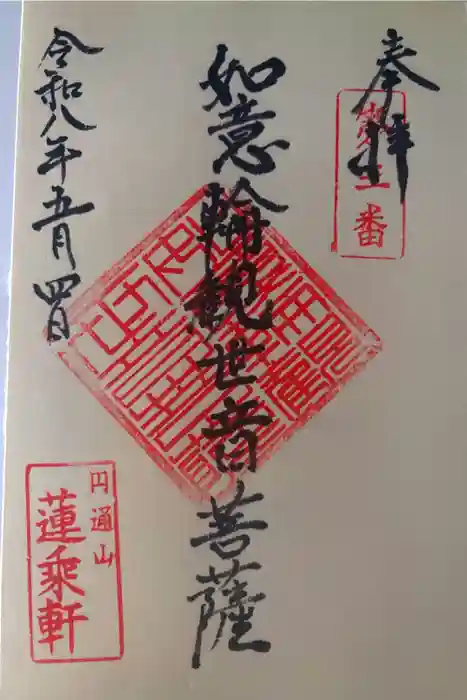 奉拝
第三番
如意輪観世音菩薩
令和八年五月四日
円通山
蓮乘軒